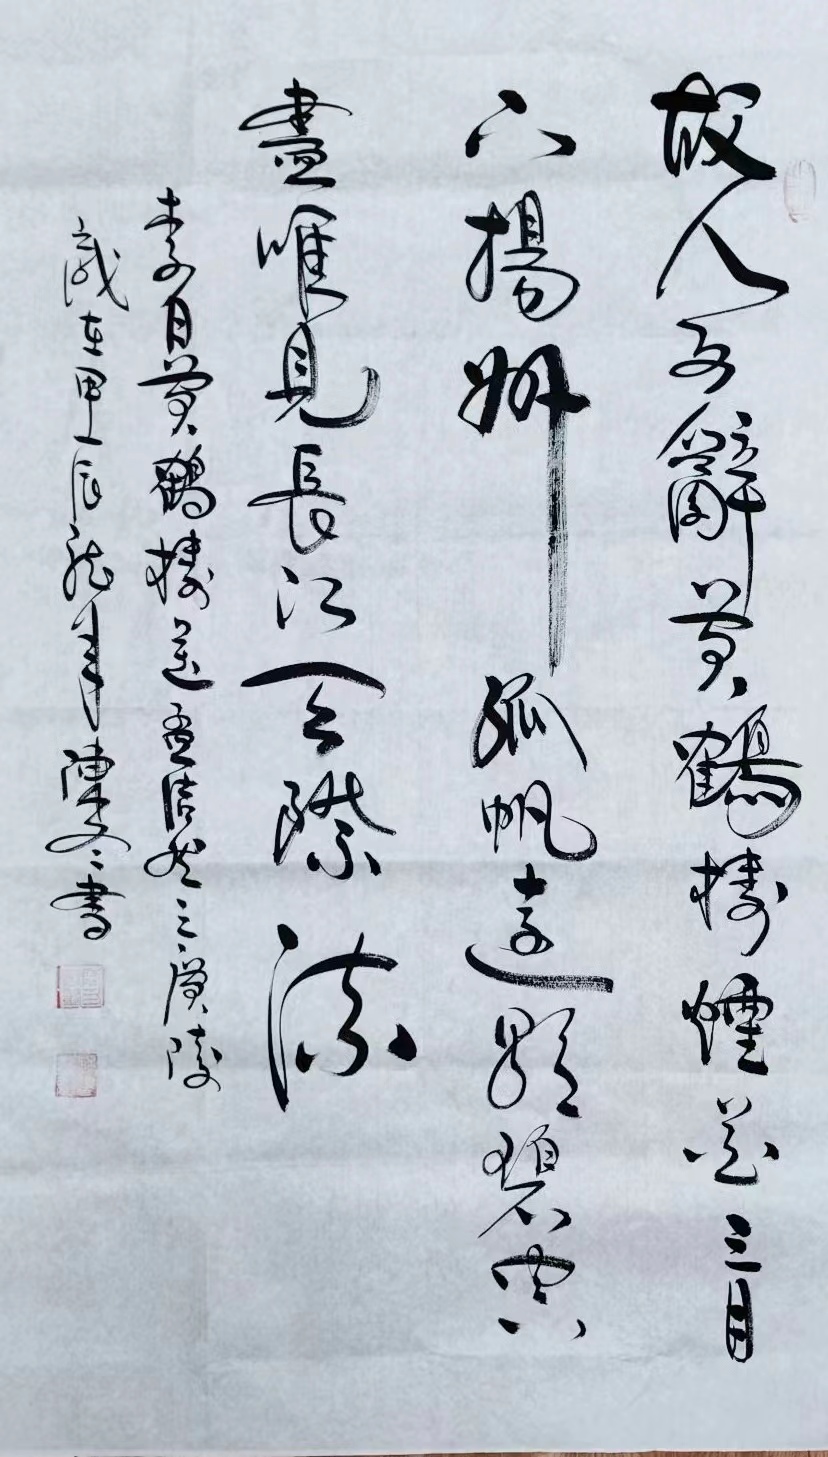 故人西辭黃鶴樓煙花三月
下揚州孤帆遠影碧空
盡唯見長江天際流
李白黃鶴樓送孟浩然之廣陵
歲在甲辰龍年陳書